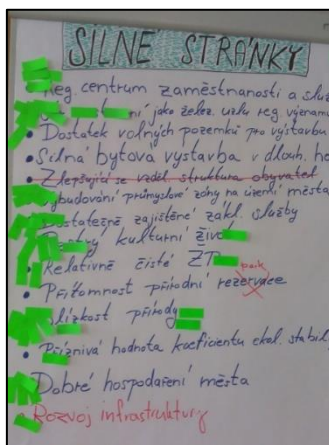 SILNÉ STRÁNKY
Reg. centrum zaměstnanosti a služ
jako želez. uzlu reg. významu
• Dostatek volných pozemků pro výstavbu
• Silná bytová výstavba v dlouh. ho
• Zlepšující se vzděl. struktura obyvatel
budování průmyslové zóny na území města
dostatečné zajištění zákl. služby
kulturní živo
• Relativně čisté ŽP
• Přítomnost přírodní rezervace
park
blízkost přírody
• Příznivá hodnota koeficientu ekol. stabil
Dobré hospodaření města
• Rozvoj infrastruktury